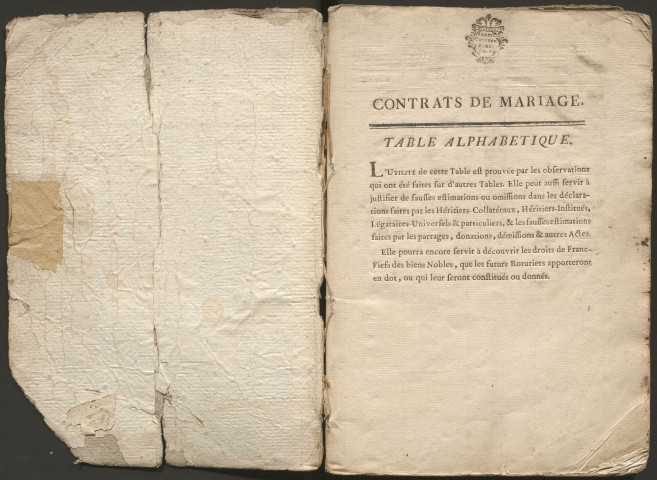 CONTRATS DE MARIAGE.
TABLE ALPHABETIQUE.
L'UTILITÉ de cette Table est prouvée par les observations
qui ont été faites sur d'autres Tables. Elle peut aussi servir à
justifier de fausses estimations ou omissions dans les déclara-
tions faites par les Héritiers-Collatéraux, Héritiers-Institués,
Légataires-Universels & particuliers, & les fausses estimations
faites par les partages, donations, démissions & autres Actes.
Elle pourra encore servir à découvrir les droits de Franc-
Fiefs des biens Nobles, que les futurs Roturiers apporteront
en dot, ou qui leur seront constitués ou donnés.